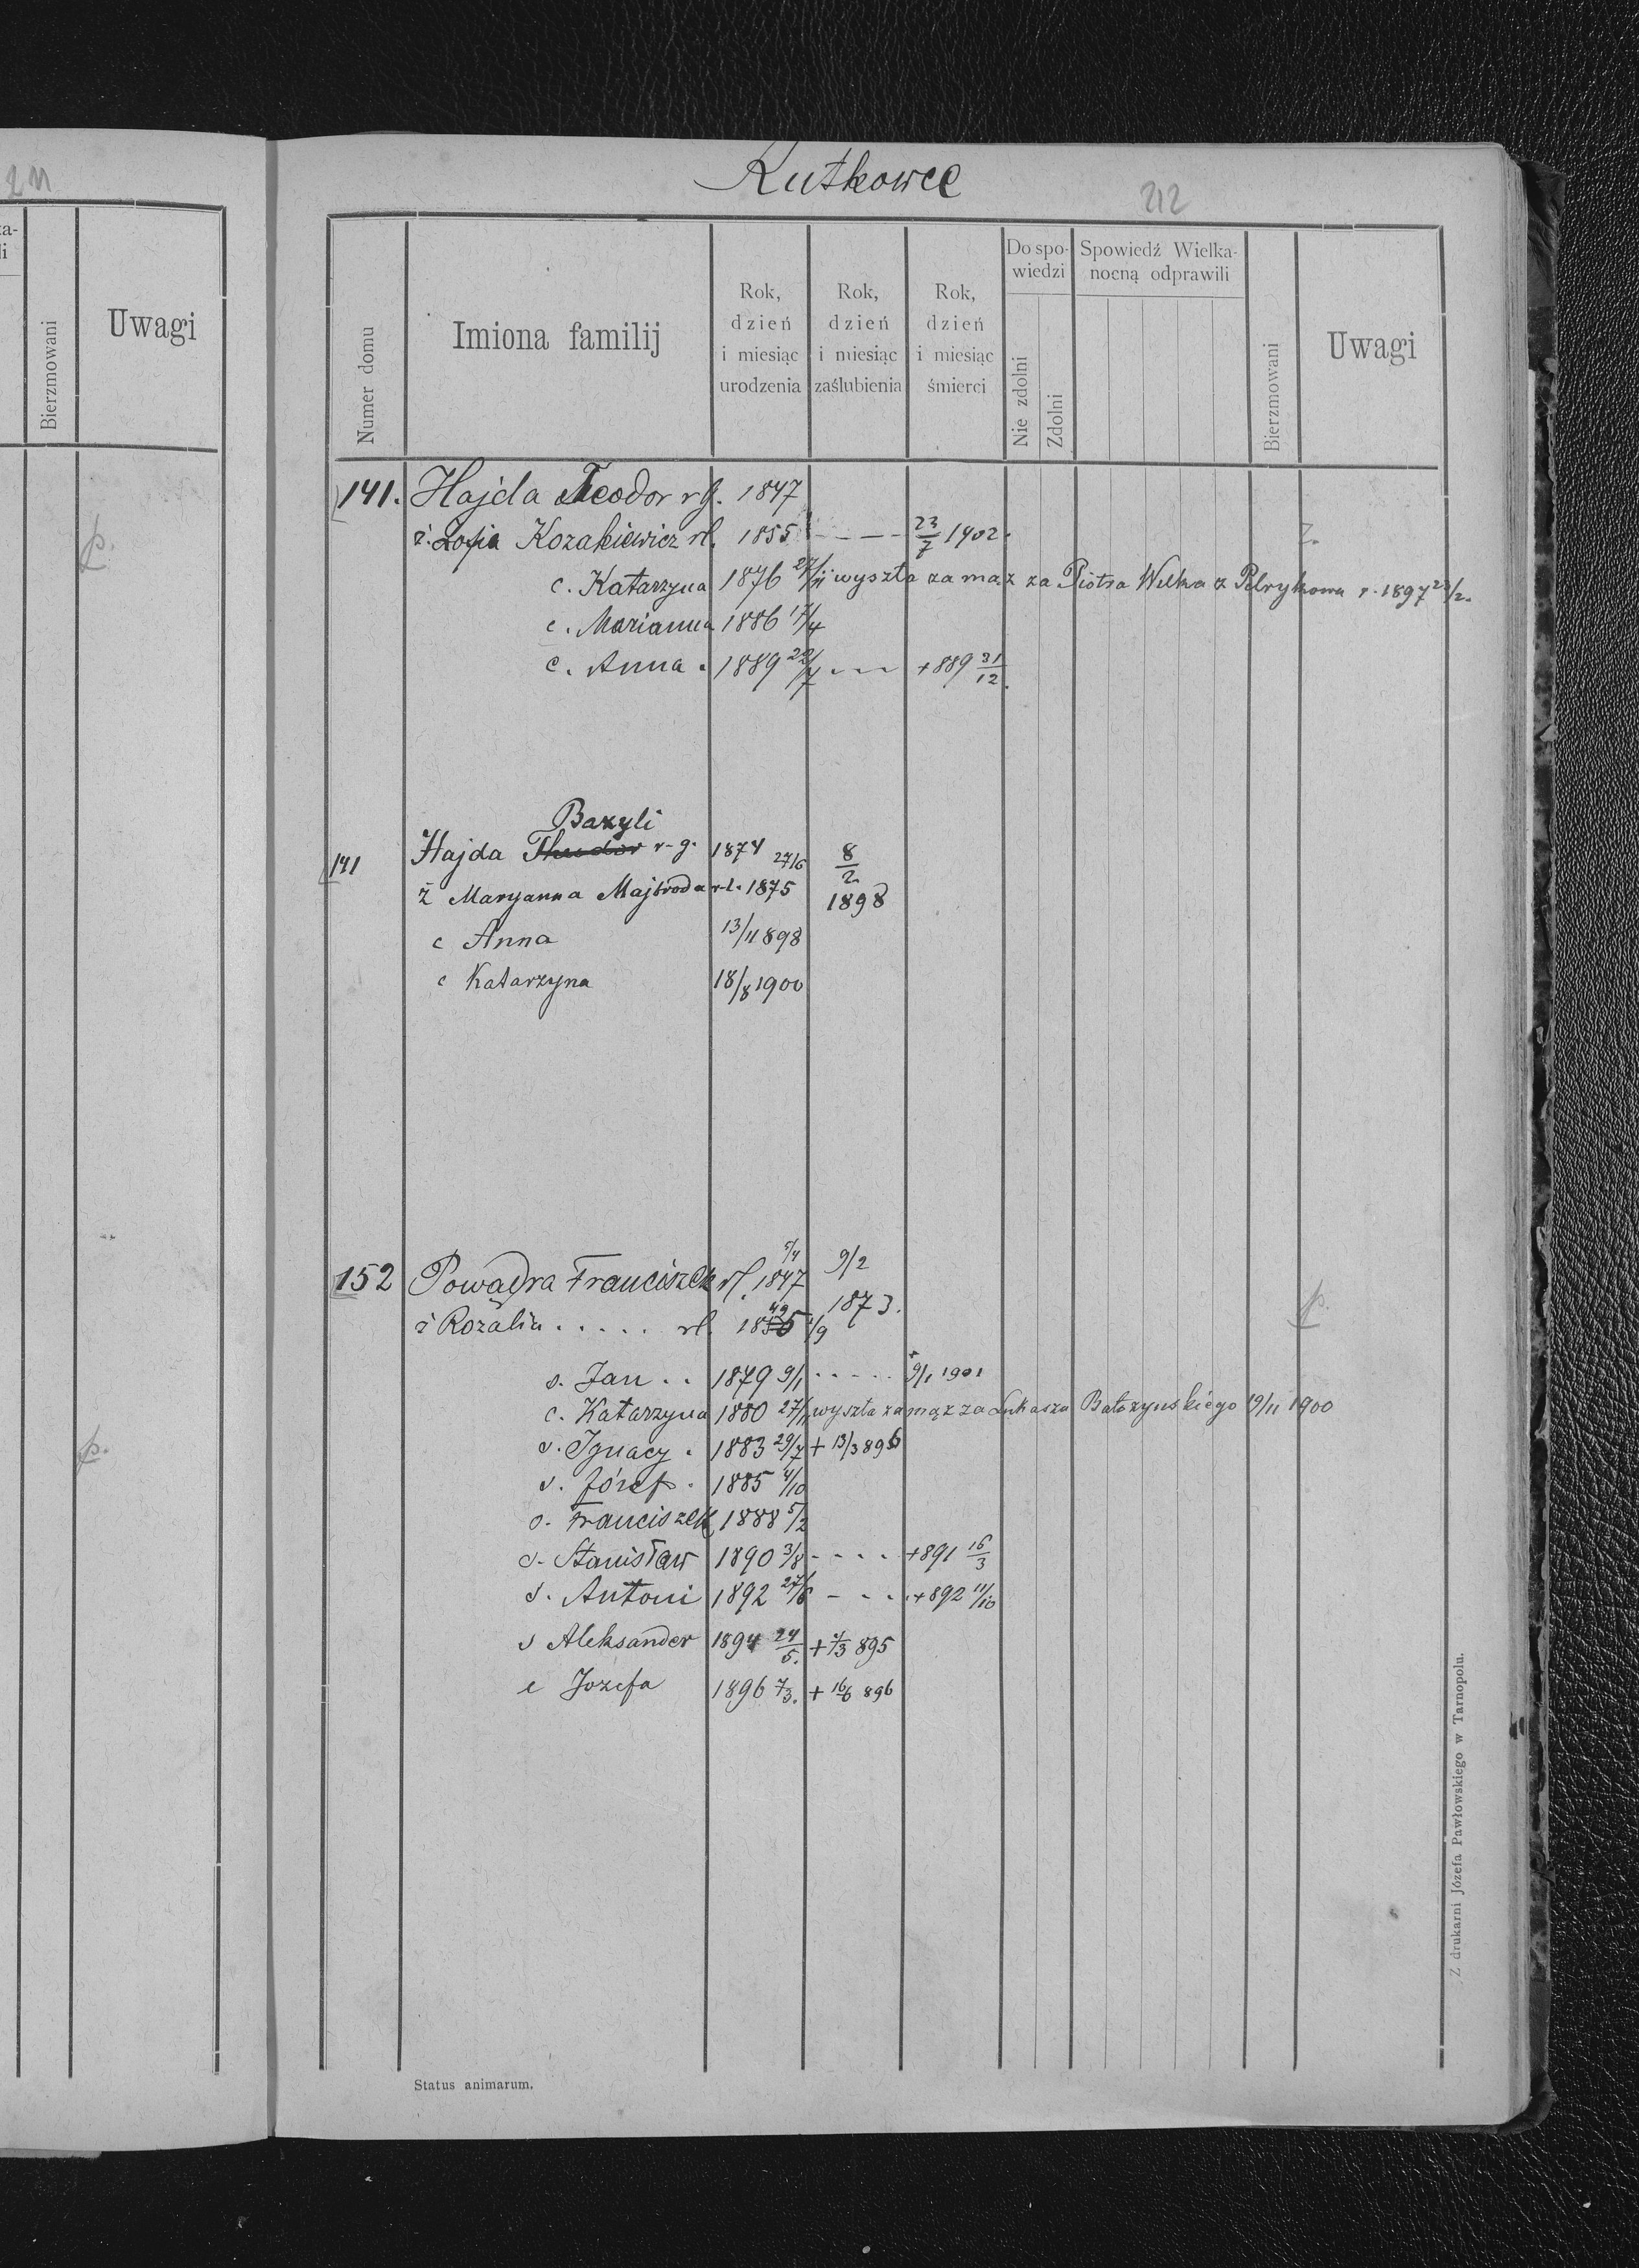 211
Bierzmowani
Uwagi
Kutkowce
212
Numer domu
Imiona familij
Rok, dzień i miesiąc urodzenia
Rok, dzień i miesiąc zaślubienia
Rok, dzień i miesiąc śmierci
Do spowiedzi
Nie zdolni
Zdolni
Spowiedź Wielkanocną odprawili
Bierzmowani
Uwagi
141. Hajda Teodor r g. 1847
ż. Zofia Kozakiewicz rl. 1855 - - - 23/7 1902.
c. Katarzyna 1876 27/11 wyszła za mąż za Piotra Wilka z Petrykowa r. 1897 23/2.
c. Marianna 1886 17/4
c. Anna . 1889 22/7 - - - +889 31/12.
Bazyli
141 Hajda Theodor r-g. 1874 27/6 8/2 1898
ż Maryanna Majbroda r-l. 1875
c Anna 13/11 898
c Katarzyna 18/8 1900
152 Powądra Franciszek rl. 1847 5/4 9/2 1873.
ż Rozalia . . . . . rl. 1855 49 /9
s. Jan . . 1879 9/1 . . . . . + 9/1 1901
c. Katarzyna 1880 27/11 wyszła za mąż za Łukasza Batożyńskiego 19/11 1900
s. Ignacy . 1883 29/7 + 13/3 896
s. Józef . 1885 4/10
s. Franciszek 1888 5/2
s. Stanisław 1890 3/8 - - - - +891 16/3
s. Antoni 1892 27/6 - - - +892 11/10
s Aleksander 1894 24/5. + 4/3 895
c Jozefa 1896 7/3. + 16/6 896
Status animarum.
Z drukarni Józefa Pawłowskiego w Tarnopolu.